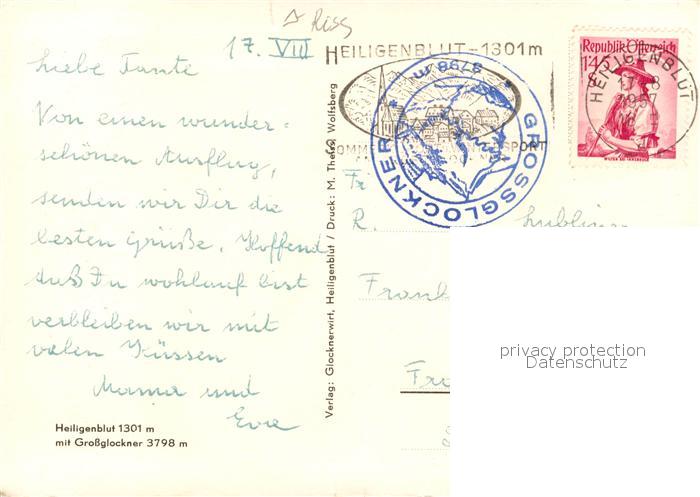 Riss
17. VIII
Liebe Tante
Von einen wunder=
schönen Ausflug,
senden wir Dir die
besten Grüße. Hoffend
daß Du wohlauf bist
verbleiben wir mit
vielen Küssen
Mama und
Eva
Heiligenblut 1301 m
mit Großglockner 3798 m
Verlag: Glocknerwirt, Heiligenblut / Druck: M. Theiss, Wolfsberg
HEILIGENBLUT-1301m
SPORT
GROSSGLOCKNER
3798 m
Republik Österreich
HEILIGENBLUT
Fr
R.
Fr
privacy protection
Datenschutz